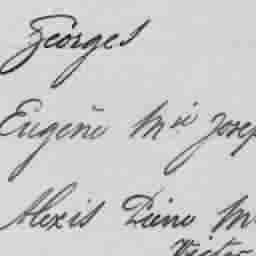 Georges
Eugène Mie Josep
Alexis Pierre M
Victor